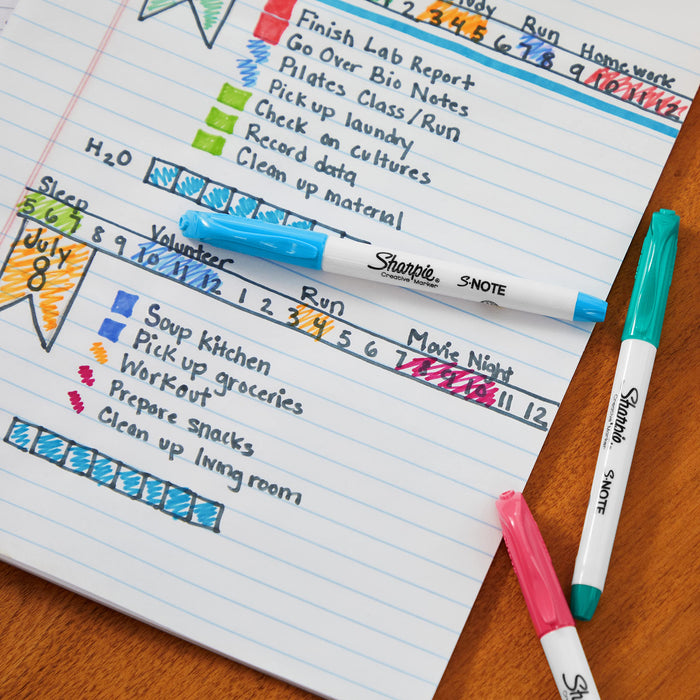 Run
Homework
2 3 4 5 6 7 8 9 10 11 12
Finish Lab Report
Go Over Bio Notes
Pilates Class/Run
Pick up laundry
Check on cultures
Record data
Clean up material
H2O
Sleep
Volunteer
Run
Movie Night
5 6 7 8 9 10 11 12 1 2 3 4 5 6 7 8 9 10 11 12
July
8
Soup kitchen
Pick up groceries
Workout
Prepare snacks
Clean up living room
Sharpie®
Creative Marker
S·NOTE
Sharpie
Creative Marker
S·NOTE